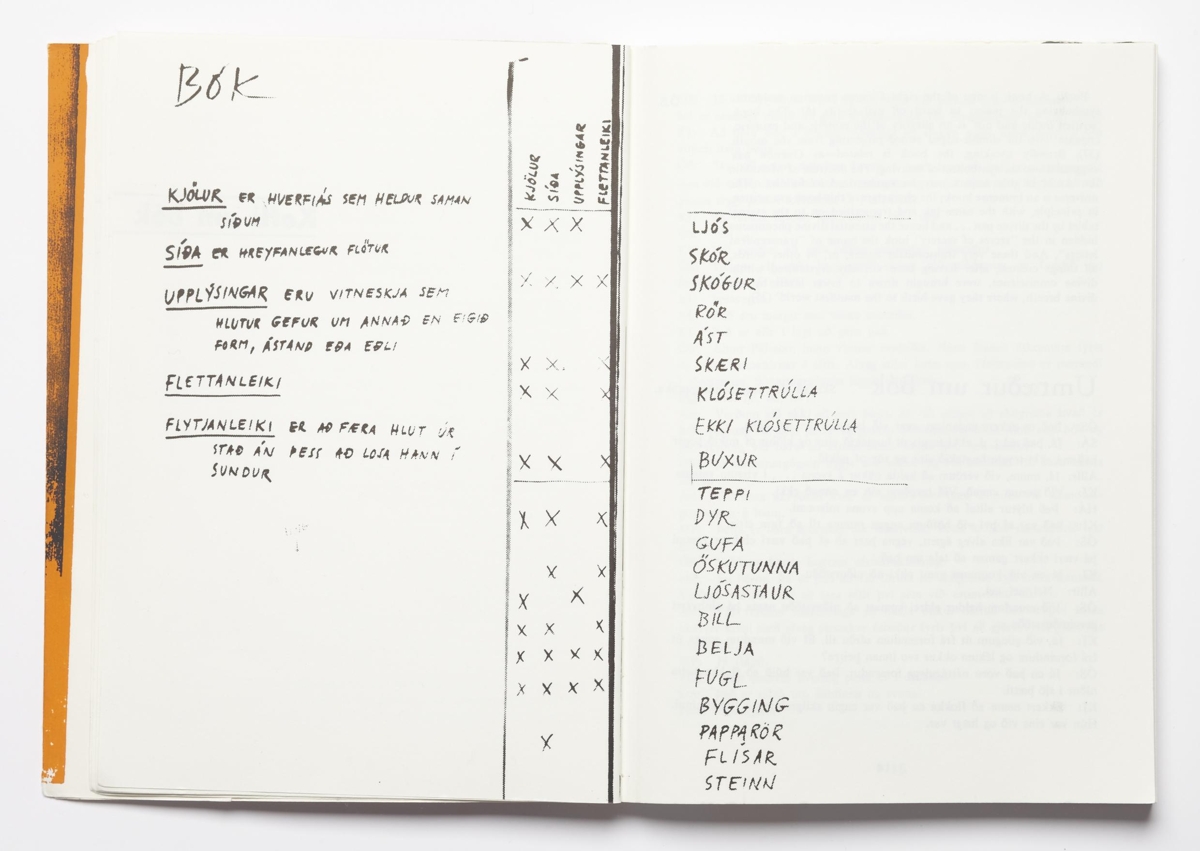 BÓK
KJÖLUR ER HVERFIÁS SEM HELDUR SAMAN
SÍÐUM
SÍÐA ER HREYFANLEGUR FLÖTUR
UPPLÝSINGAR ERU VITNESKJA SEM
HLUTUR GEFUR UM ANNAÐ EN EIGIÐ
FORM, ÁSTAND EÐA EÐLI
FLETTANLEIKI
FLYTJANLEIKI ER AÐ FÆRA HLUT ÚR
STAÐ ÁN ÞESS AÐ LOSA HANN Í
SUNDUR
KJÖLUR
SÍÐA
UPPLÝSINGAR
FLETTANLEIKI
X X X
X X X X
X X X
X X X
X X X
X X X
X X
X X
X X X
X X X X
X X X X
X
LJÓS
SKÓR
SKÓGUR
RÖR
ÁST
SKÆRI
KLÓSETTRÚLLA
EKKI KLÓSETTRÚLLA
BUXUR
TEPPI
DYR
GUFA
ÖSKUTUNNA
LJÓSASTAUR
BÍLL
BELJA
FUGL
BYGGING
PAPPARÖR
FLÍSAR
STEINN